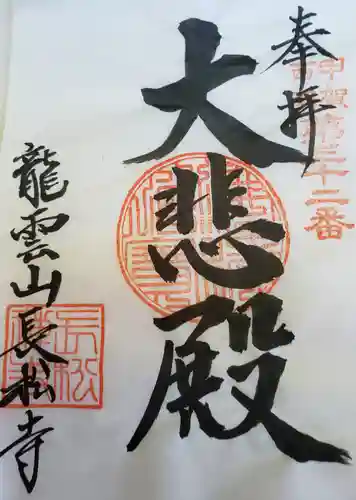 奉拝
甲賀
第三十二番
大悲殿
龍雲山長松寺